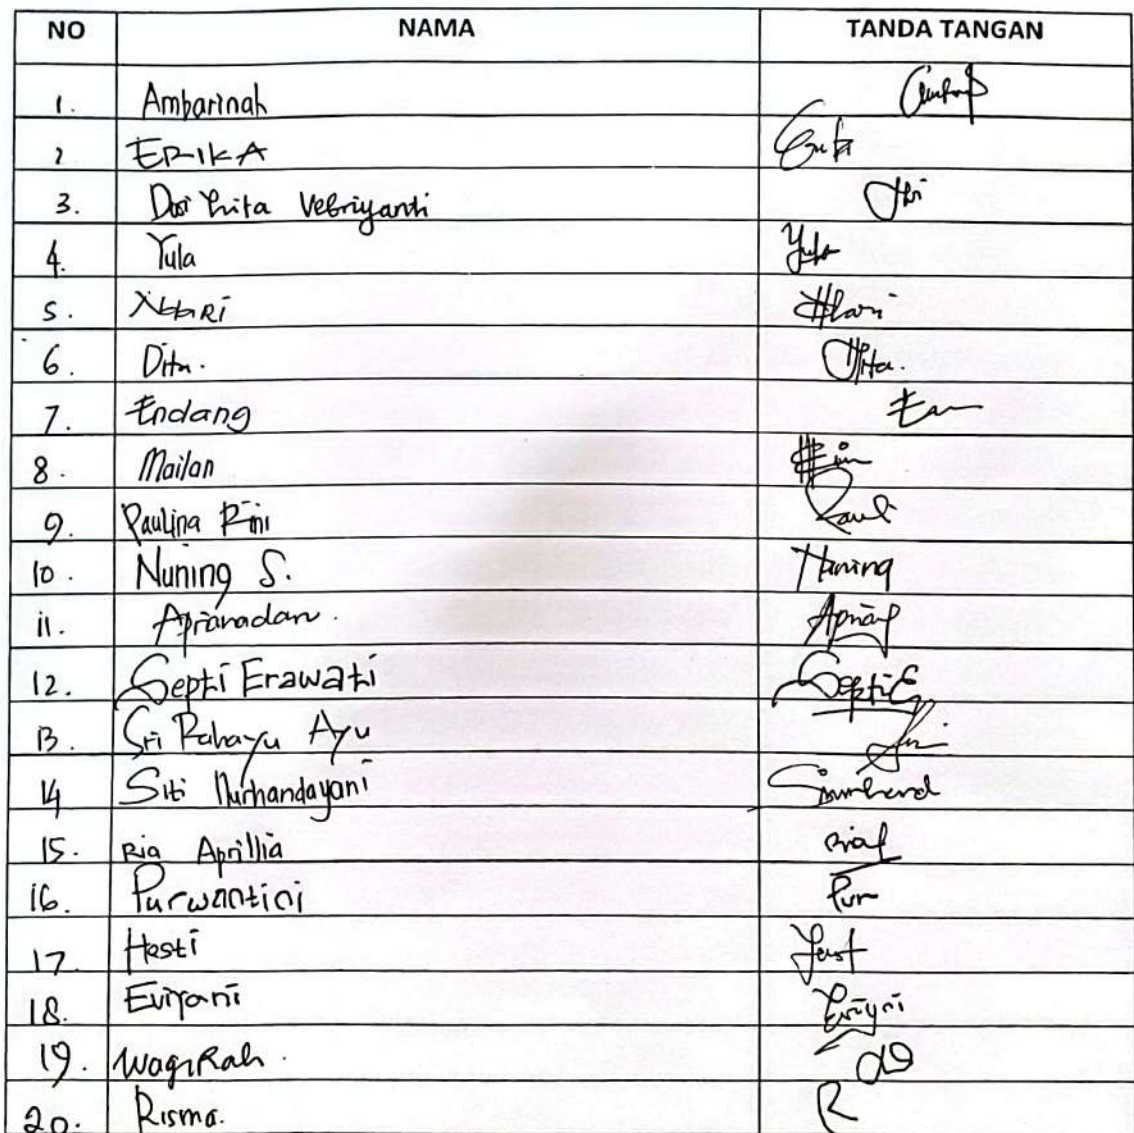 NO NAMA TANDA TANGAN
1. Ambarinah
2 ERIKA
3. Vebriyanti
4. Yula Yula
5.
6. Dita. Dita.
7. Endang
8. Mailan
9. Paulina Rini Paul
10. Nuning S. Nuning
11. Apranadan.
12. Septi Erawati Septi
13. Sri Rahayu Ayu
14 Siti Nurhandayani
15. Ria Aprillia
16. Purwantini Pur
17. Hesti
18. Eviyani Eviyani
19. WagiRah.
20. Risma. R